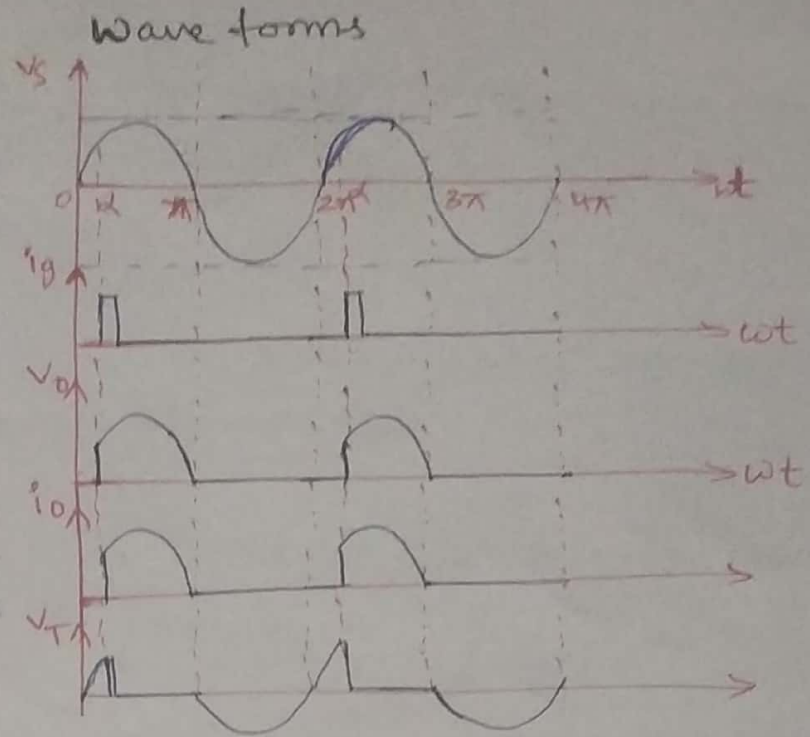 Wave forms
Vs
0 α π 2π α 3π 4π ωt
ig
ωt
Vo
ωt
io
VT